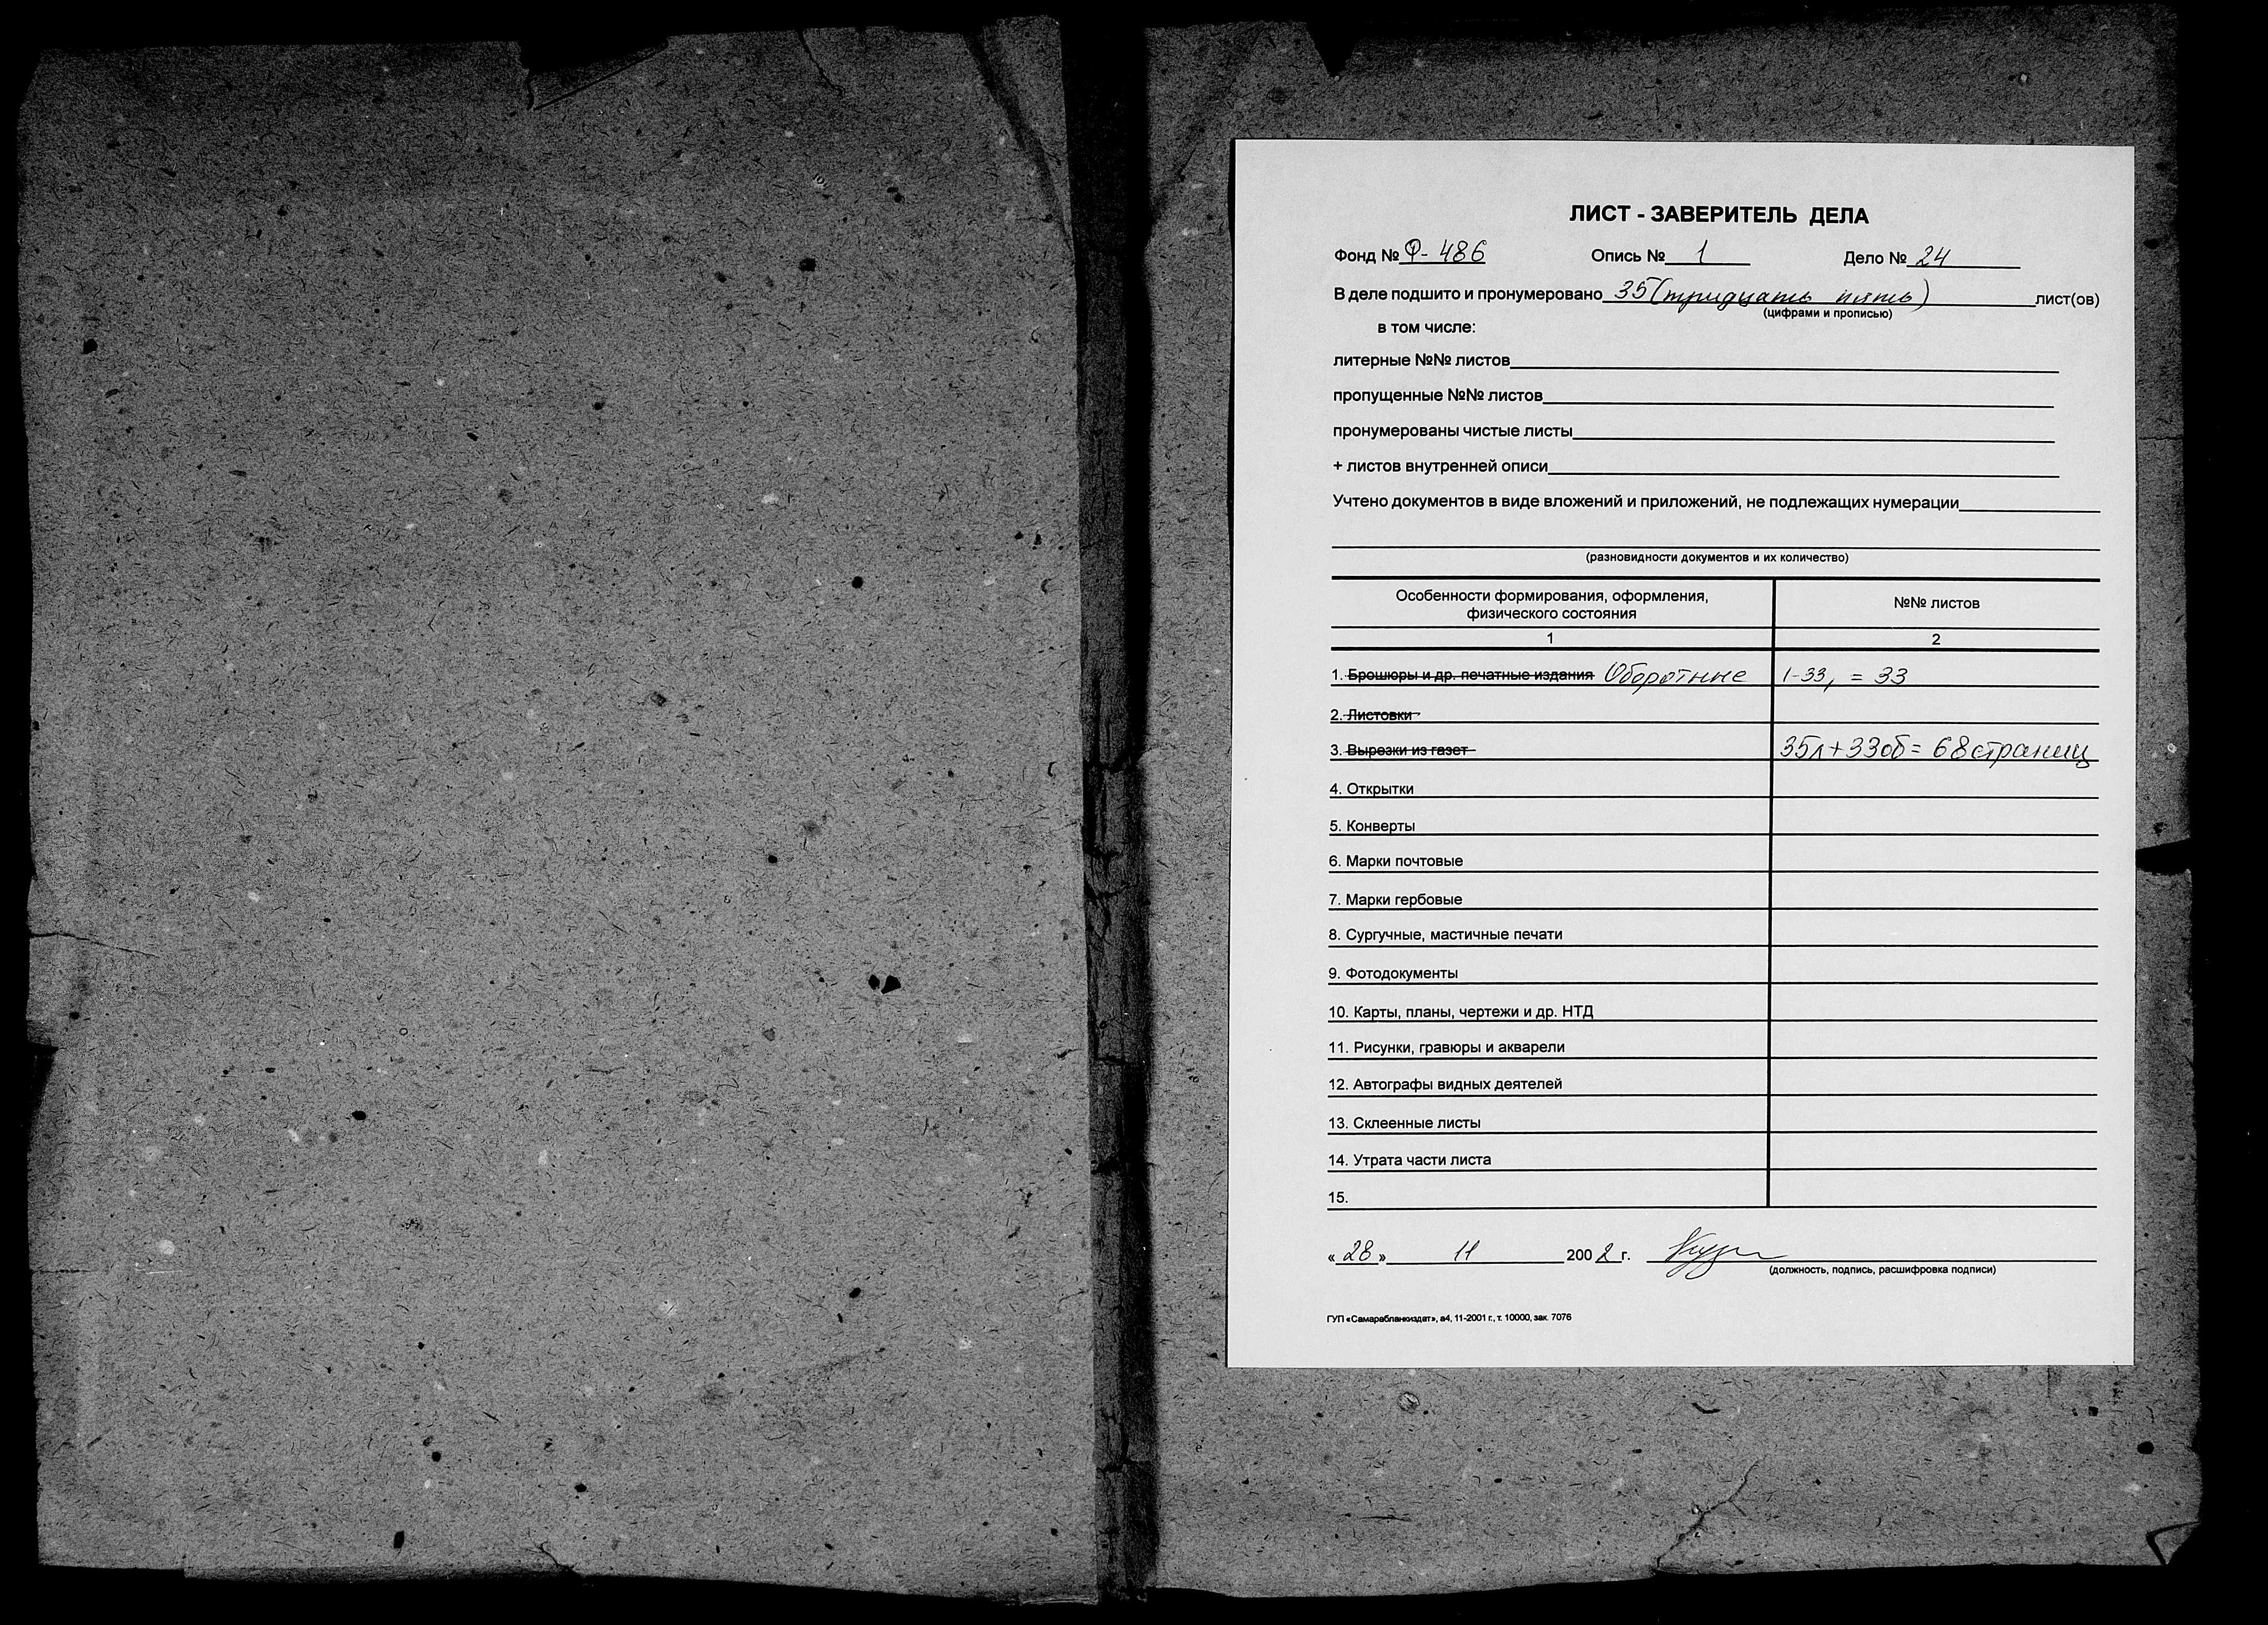 ЛИСТ - ЗАВЕРИТЕЛЬ ДЕЛА
Фонд № Ф- 486 Опись № 1 Дело № 24
В деле подшито и пронумеровано 35 (тридцать пять) лист(ов)
(цифрами и прописью)
в том числе:
литерные №№ листов
пропущенные №№ листов
пронумерованы чистые листы
+ листов внутренней описи
Учтено документов в виде вложений и приложений, не подлежащих нумерации
(разновидности документов и их количество)
Особенности формирования, оформления, №№ листов
физического состояния
1 2
1. Брошюры и др. печатные издания Оборотные 1-33, = 33
2. Листовки
3. Вырезки из газет 35л+33об= 68 страниц
4. Открытки
5. Конверты
6. Марки почтовые
7. Марки гербовые
8. Сургучные, мастичные печати
9. Фотодокументы
10. Карты, планы, чертежи и др. НТД
11. Рисунки, гравюры и акварели
12. Автографы видных деятелей
13. Склеенные листы
14. Утрата части листа
15.
« 28 » 11 200 2 г.
(должность, подпись, расшифровка подписи)
ГУП «Самарабланкиздат», а4, 11-2001 г., т. 10000, зак. 7076